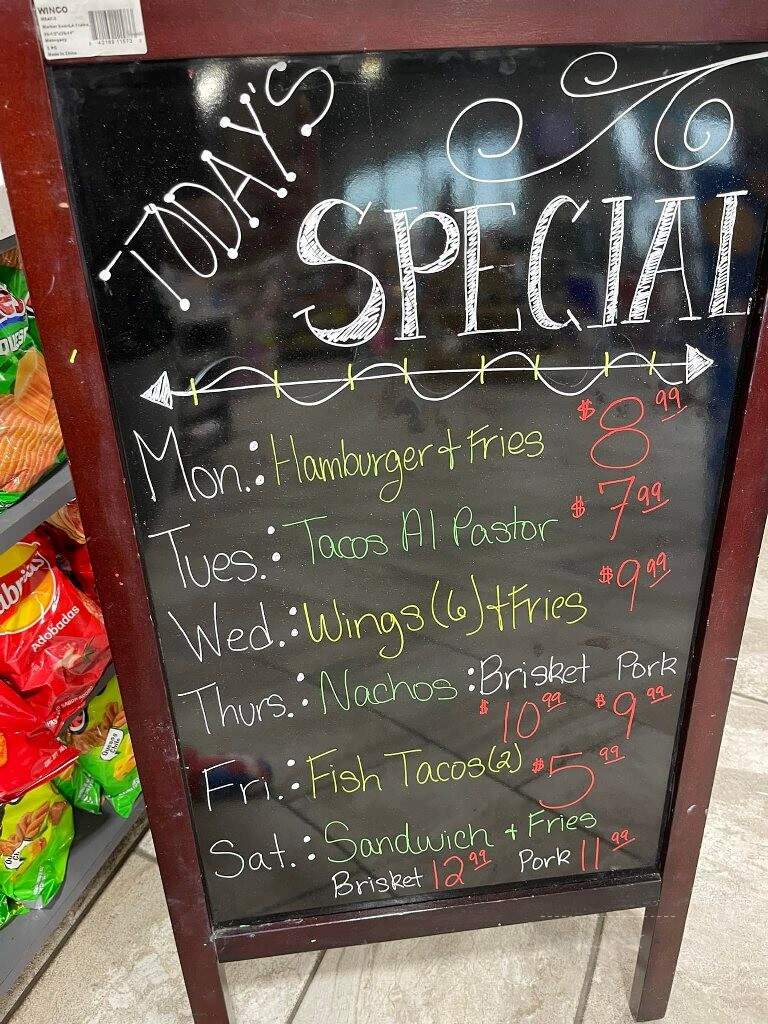 WINCO
TODAY'S
SPECIAL
Mon.: Hamburger + Fries $8.99
Tues.: Tacos Al Pastor $7.99
Wed.: Wings (6) + Fries $9.99
Thurs.: Nachos: Brisket Pork
$10.99 $9.99
Fri.: Fish Tacos (2) $5.99
Sat.: Sandwich + Fries
Brisket 12.99 Pork 11.99
Adobadas